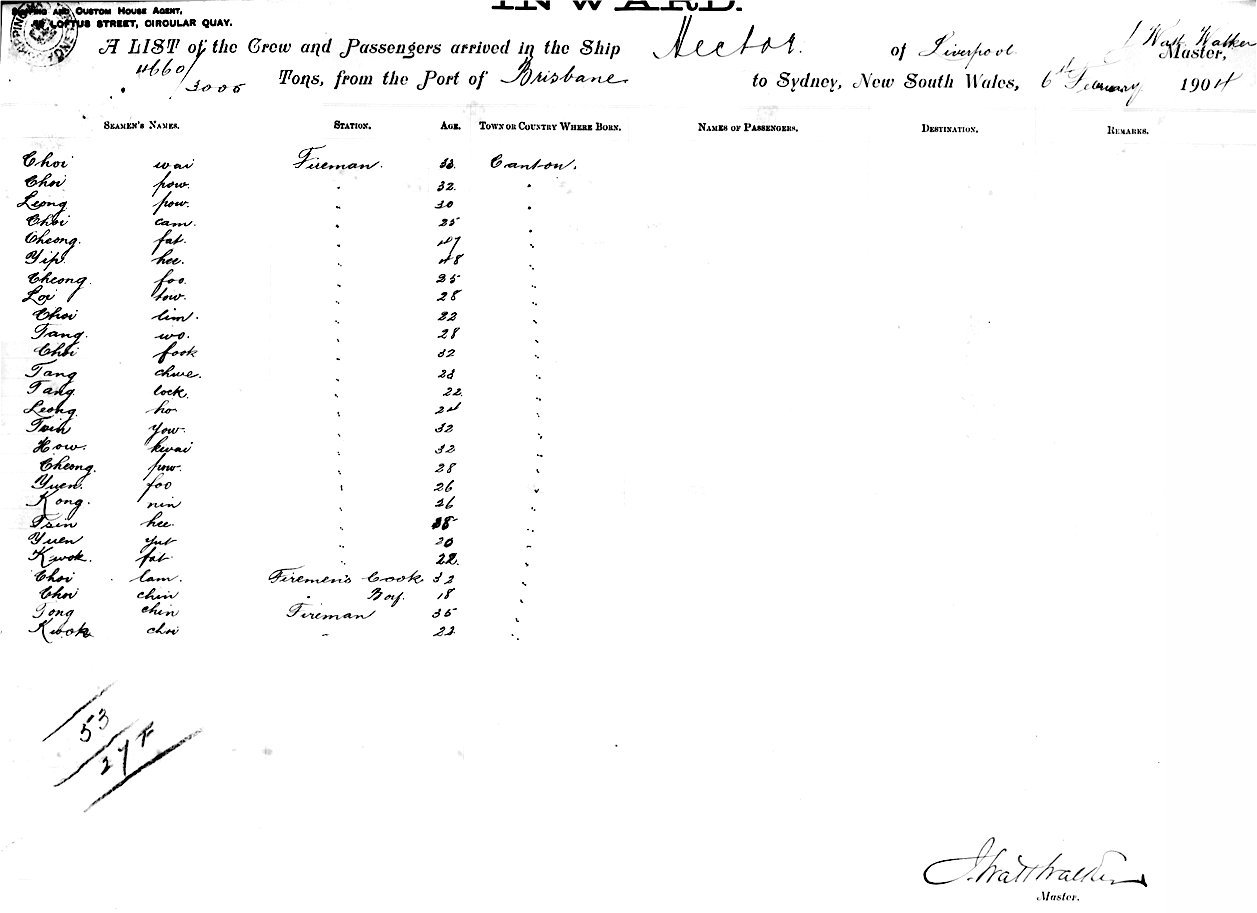 INWARD.
Shipping and Custom House Agent,
Loftus Street, Circular Quay.
A LIST of the Crew and Passengers arrived in the Ship Hector. of Liverpool J Watt Walker Master,
4660/3005 Tons, from the Port of Brisbane to Sydney, New South Wales, 6th February 1904
Seamen's Names. Station. Age. Town or Country Where Born. Names of Passengers. Destination. Remarks.
Choi wai Fireman. 33 Canton.
Choi pow. " 32. "
Leong pow. " 30 "
Choi cam. " 25 "
Cheong. fat. " 47 "
Yip. hee. " 48 "
Cheong. foo. " 25 "
Loi tow. " 28 "
Choi lim. " 22 "
Tang. wo. " 28 "
Choi fook " 32 "
Tang chwe. " 23 "
Tang lock. " 22 "
Leong ho " 24 "
Tsin yow. " 32 "
How. kwai " 32 "
Cheong. pow. " 28 "
Yuen. foo " 26 "
Kong. nin " 26 "
Tsin hee. " 38 "
Yuen yut " 20 "
Kwok. fat " 22. "
Choi lam. Firemen's Cook 32 "
Choi chin " Boy. 18 "
Tong chin Fireman 35 "
Kwok choi " 22 "
53
27 F
J. Watt Walker
Master.